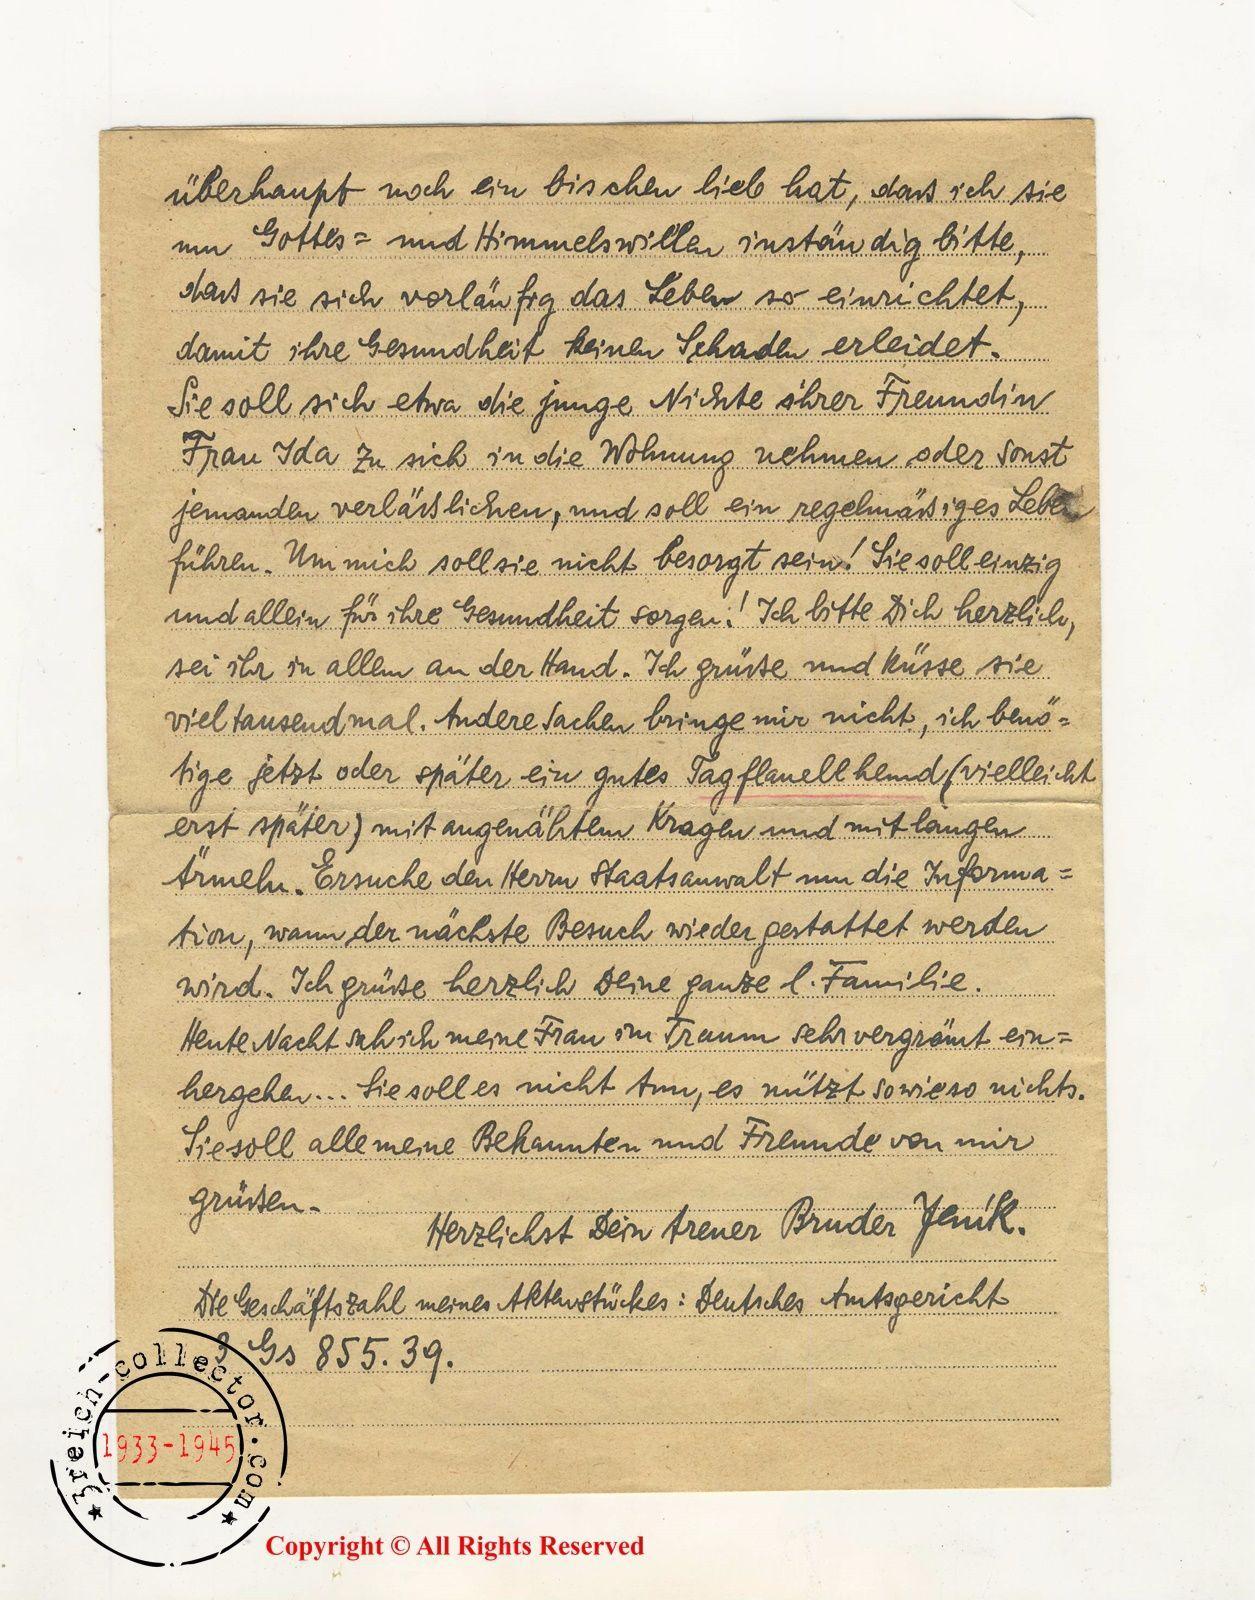 überhaupt noch ein bischen lieb hat, dass ich sie
um Gottes= und Himmelswillen inständig bitte,
dass sie sich vorläufig das Leben so einrichtet,
damit ihre Gesundheit keinen Schaden erleidet.
Sie soll sich etwa die junge Nichte ihrer Freundin
Frau Ida zu sich in die Wohnung nehmen oder sonst
jemanden verlässlichen, und soll ein regelmässiges Leben
führen. Um mich soll sie nicht besorgt sein! Sie soll einzig
und allein für ihre Gesundheit sorgen! Ich bitte Dich herzlich,
sei ihr in allem an der Hand. Ich grüsse und küsse sie
viel tausendmal. Andere Sachen bringe mir nicht, ich benö=
tige jetzt oder später ein gutes Tagflanellhemd (vielleicht
erst später) mit angenähtem Kragen und mit langen
Ärmeln. Ersuche den Herrn Staatsanwalt um die Informa=
tion, wann der nächste Besuch wieder gestattet werden
wird. Ich grüsse herzlich Deine ganze l. Familie.
Heute Nacht sah ich meine Frau im Traum sehr vergrämt ein=
hergehen... Sie soll es nicht tun, es nützt sowieso nichts.
Sie soll alle meine Bekannten und Freunde von mir
grüssen.
Herzlichst Dein treuer Bruder Jeník.
Die Geschäftszahl meines Aktenstückes: Deutsches Amtsgericht
3 Gs 855.39.
3reich-collector.com
1933-1945
Copyright © All Rights Reserved